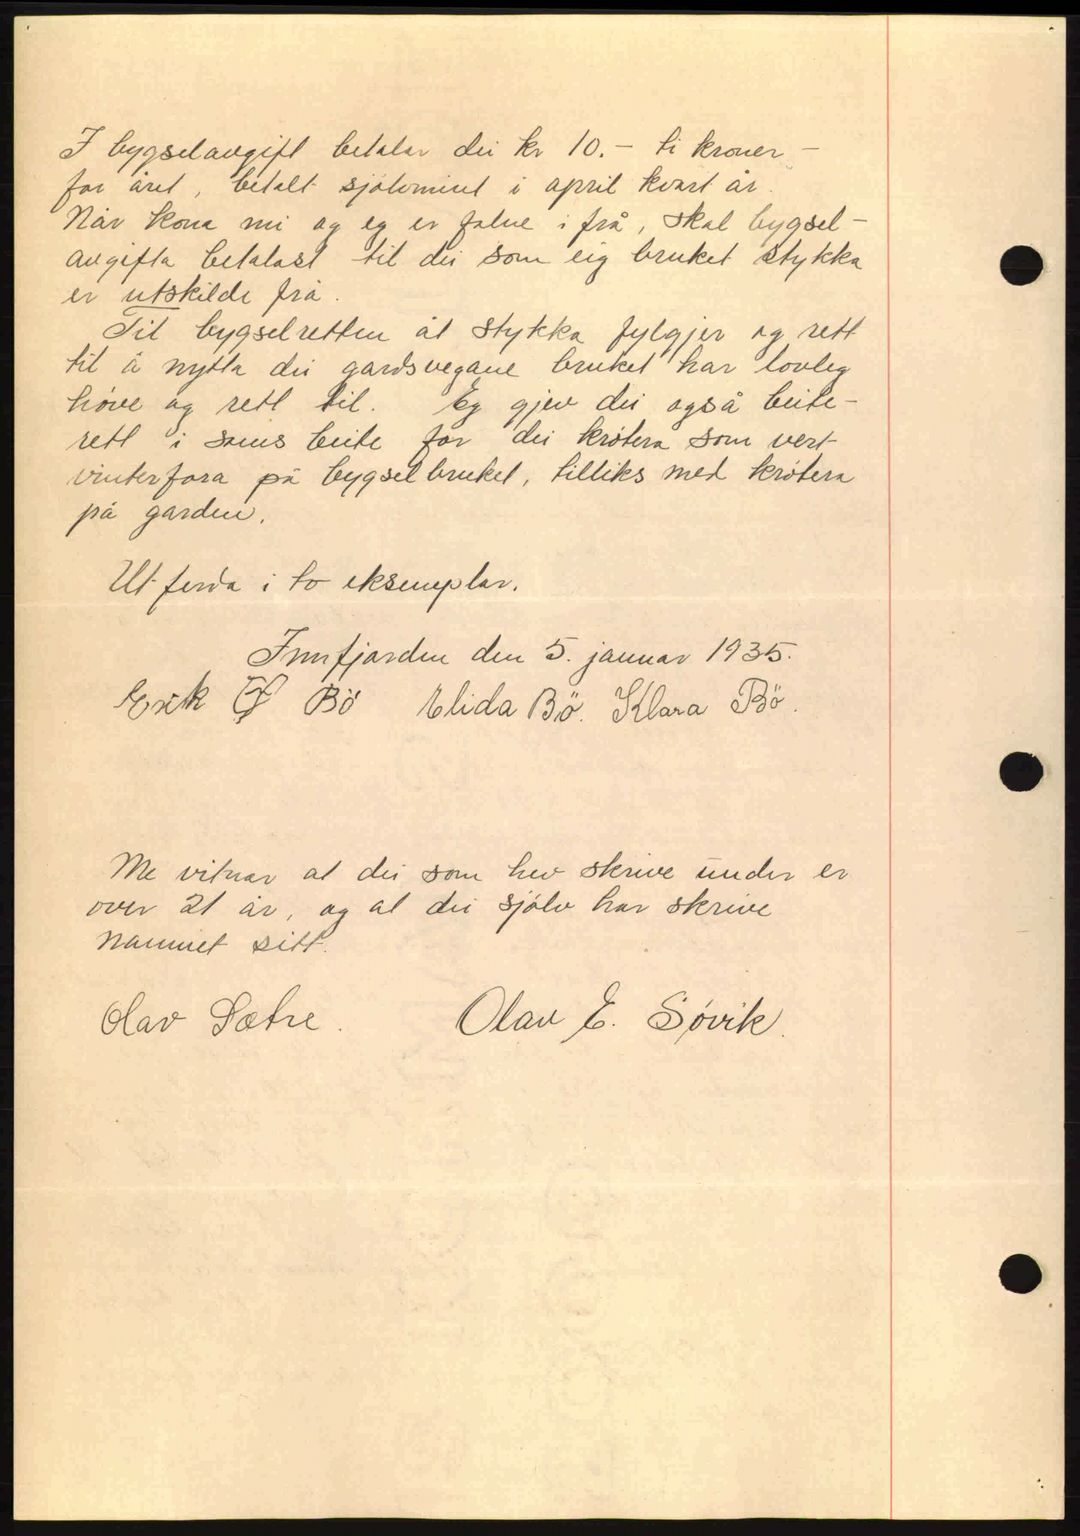 I bygselavgift betalar dei kr 10.- ti kroner -
for året, betalt sjølvmint i april kvart år.
Når kona mi og eg er falne i frå, skal bygsel-
avgifta betalast til dei som eig bruket stykka
er utskilde frå.
Til bygselretten åt stykka fylgjer og rett
til å nytta dei gardsvegane bruket har lovleg
høve og rett til. Eg gjev dei også beite-
rett i sams beite for dei krøtera som vert
vinterfora på bygselbruket, tilliks med krøtera
på garden.
Utferda i to eksemplar.
Innfjorden den 5. januar 1935.
Erik Ø Bö Elida Bö. Klara Bö.
Me vitnar at dei som hev skrive under er
over 21 år, og at dei sjølv har skrive
namnet sitt.
Olav Sætre. Olav E. Søvik.